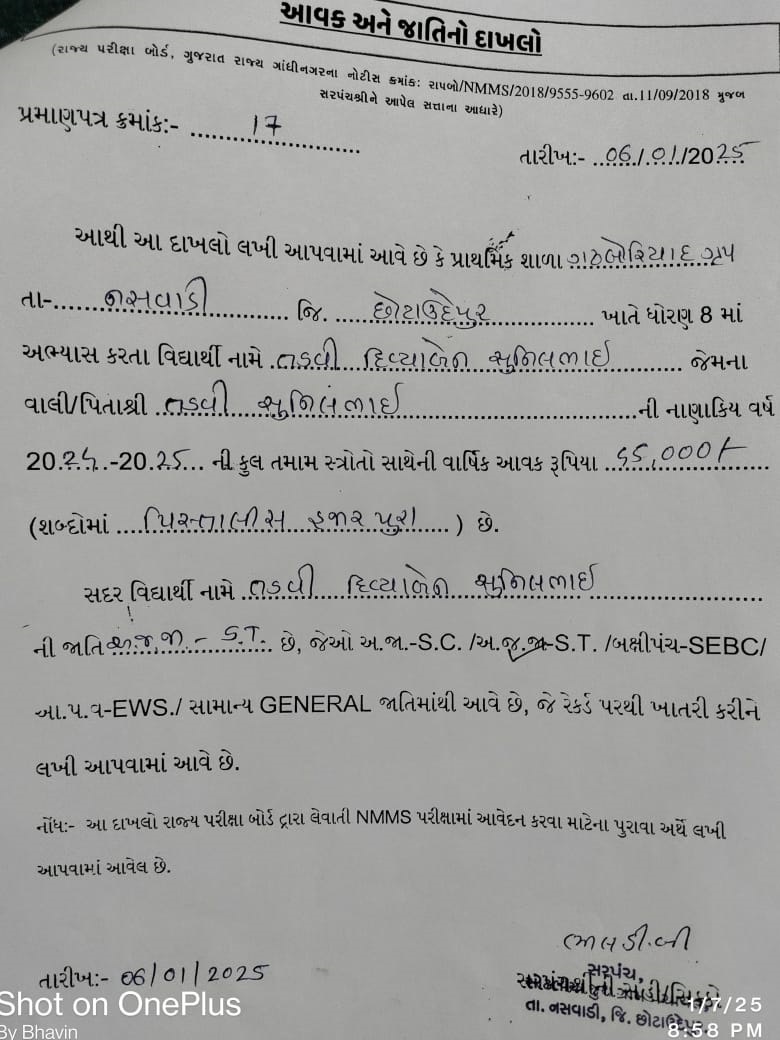 આવક અને જાતિનો દાખલો
(રાજ્ય પરીક્ષા બોર્ડ, ગુજરાત રાજ્ય ગાંધીનગરના નોટીસ ક્રમાંક: રાપબો/NMMS/2018/9555-9602 તા.11/09/2018 મુજબ
સરપંચશ્રીને આપેલ સત્તાના આધારે)
પ્રમાણપત્ર ક્રમાંક:- 17
તારીખ:- 06/01/2025
આથી આ દાખલો લખી આપવામાં આવે છે કે પ્રાથમિક શાળા ગઢબોરિયાદ ગ્રુપ
તા-નસવાડી જિ. છોટાઉદેપુર ખાતે ધોરણ 8 માં
અભ્યાસ કરતા વિદ્યાર્થી નામે તડવી દિવ્યાબેન સુનિલભાઈ જેમના
વાલી/પિતાશ્રી તડવી સુનિલભાઈ ની નાણાકિય વર્ષ
2024-2025 ની કુલ તમામ સ્ત્રોતો સાથેની વાર્ષિક આવક રૂપિયા
(શબ્દોમાં હજાર પુરા) છે.
સદર વિદ્યાર્થી નામે તડવી દિવ્યાબેન સુનિલભાઈ
ની જાતિ અ.જ.જા - S.T. છે, જેઓ અ.જા.-S.C. /અ.જ.જા-S.T. /બક્ષીપંચ-SEBC/
આ.પ.વ-EWS./ સામાન્ય GENERAL જાતિમાંથી આવે છે, જે રેકર્ડ પરથી ખાતરી કરીને
લખી આપવામાં આવે છે.
નોંધ:- આ દાખલો રાજ્ય પરીક્ષા બોર્ડ દ્વારા લેવાતી NMMS પરીક્ષામાં આવેદન કરવા માટેના પુરાવા અર્થે લખી
આપવામાં આવેલ છે.
તારીખ:- 06/01/2025
સરપંચ,
તા. નસવાડી, જિ. છોટાઉદેપુર
Shot on OnePlus
By Bhavin
1/7/25
8:58 PM